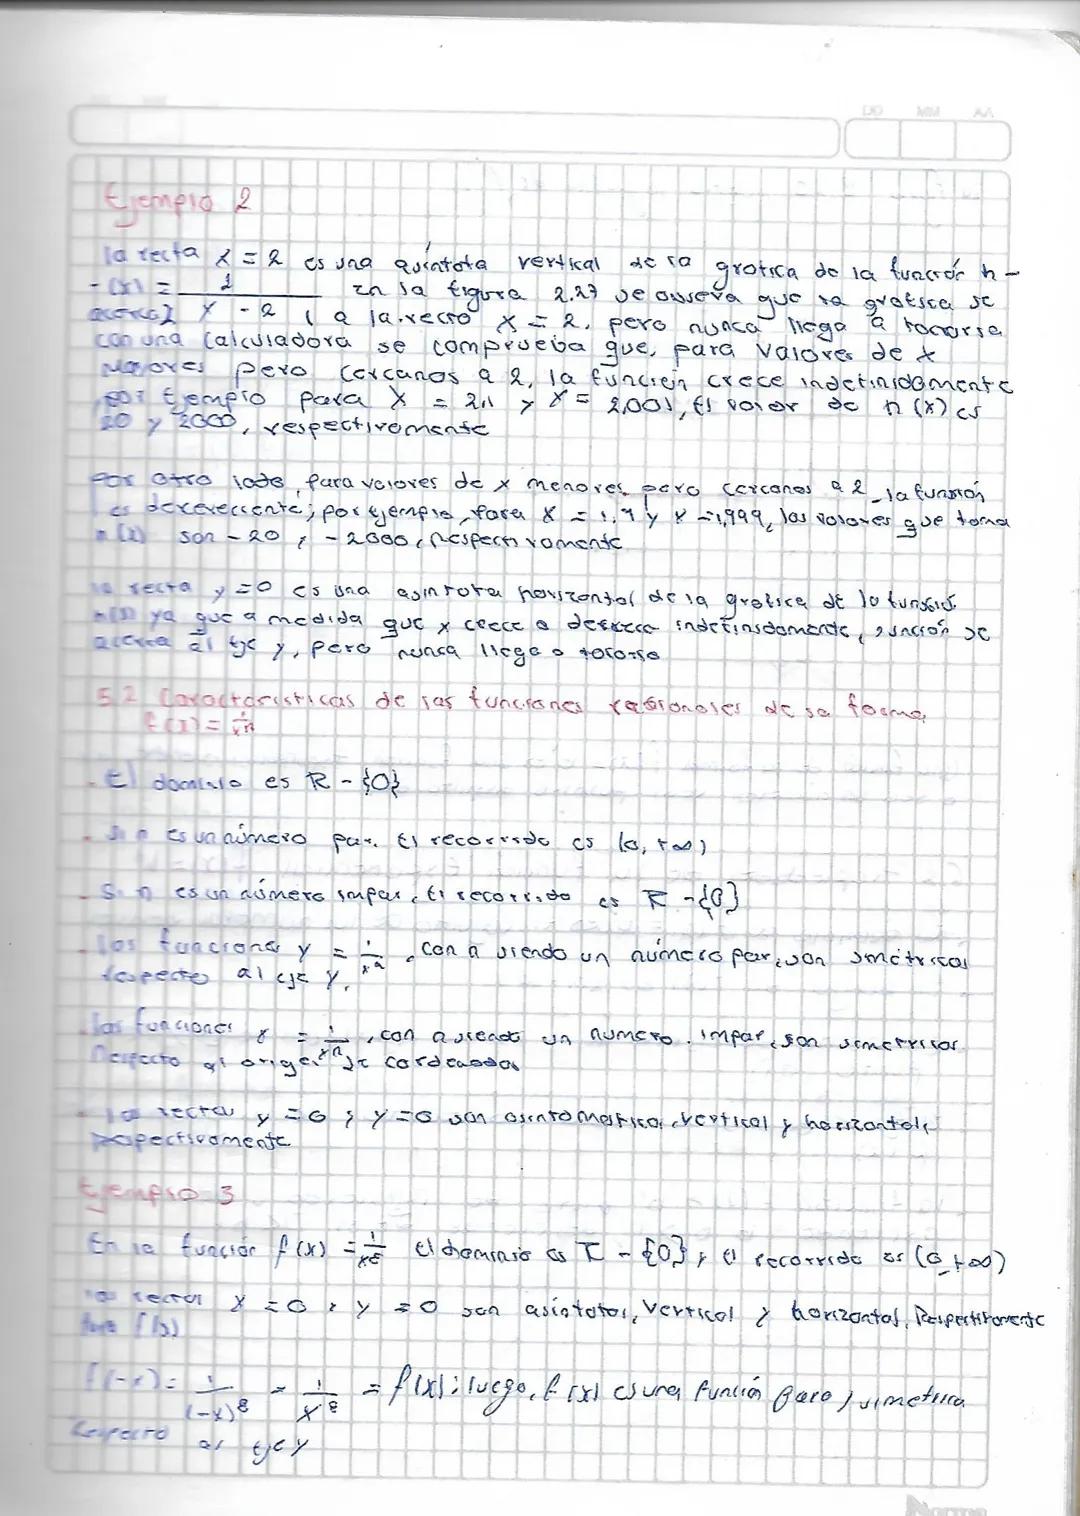 DD MM AA
Ejemplo 2
la recta x = 2 es una vertical de la grafica de la función h
(x) = 2 En la figura 2.27 se que la grafica se
acerca x - 2 a la recto x = 2, pero nunca llega a tocarse
con una calculadora se comprueba que, para valores de x
Mayores pero cercanos a 2, la función crece indefinidamente
por Ejemplo para x = 2,1 y x = 2,001, El valor de h (x) es
20 y 2000, respectivamente
Por otro lado, para valores de x menores pero cercanos a 2 la función
es por ejemplo, para x = 1,9 y x = 1,999, los valores que toma
son - 20 y - 2000, respectivamente
la recta y = 0 es una asintota horizontal de la grafica de la función
ya que a medida que x crece o indefinidamente, función se
acerca al eje y, pero nunca llega a tocarse
5.2 Caracteristicas de las funciones rasionales de la forma
f (x) = 1/xⁿ
- El dominio es R - {0}
- Si n es un número par. El recorrido es (0, +∞)
- Si n es un número impar, El recorrido es R - {0}
- las funciones y = 1/xⁿ, con n siendo un número par, son simétricas
respecto al eje y.
- las funciones y = 1/xⁿ, con n siendo un numero impar, son simetricas
Respecto al origen de
- la recta y = 0 y y = 0 son vertical y horizontal,
respectivamente
Ejemplo 3
En la función f (x) = 1/x⁸ el dominio es R - {0}, el recorrido es (0, +∞)
las rectas x = 0 y y = 0 son asintotas, vertical y horizontal, Respectivamente
para f(x)
f(-x) = 1/(-x)⁸ = 1/x⁸ = f(x); luego, f (x) es una función par y simetrica
Respecto al eje y
Norma